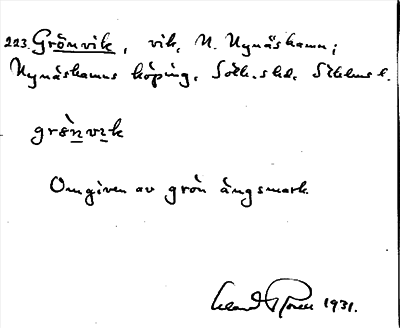 223. Grönvik, vik, N. Nynäshamn;
Nynäshamns köping, Soth. skd. Sthlms l.
grǿnvik
Omgiven av grön ängsmark.
1931.